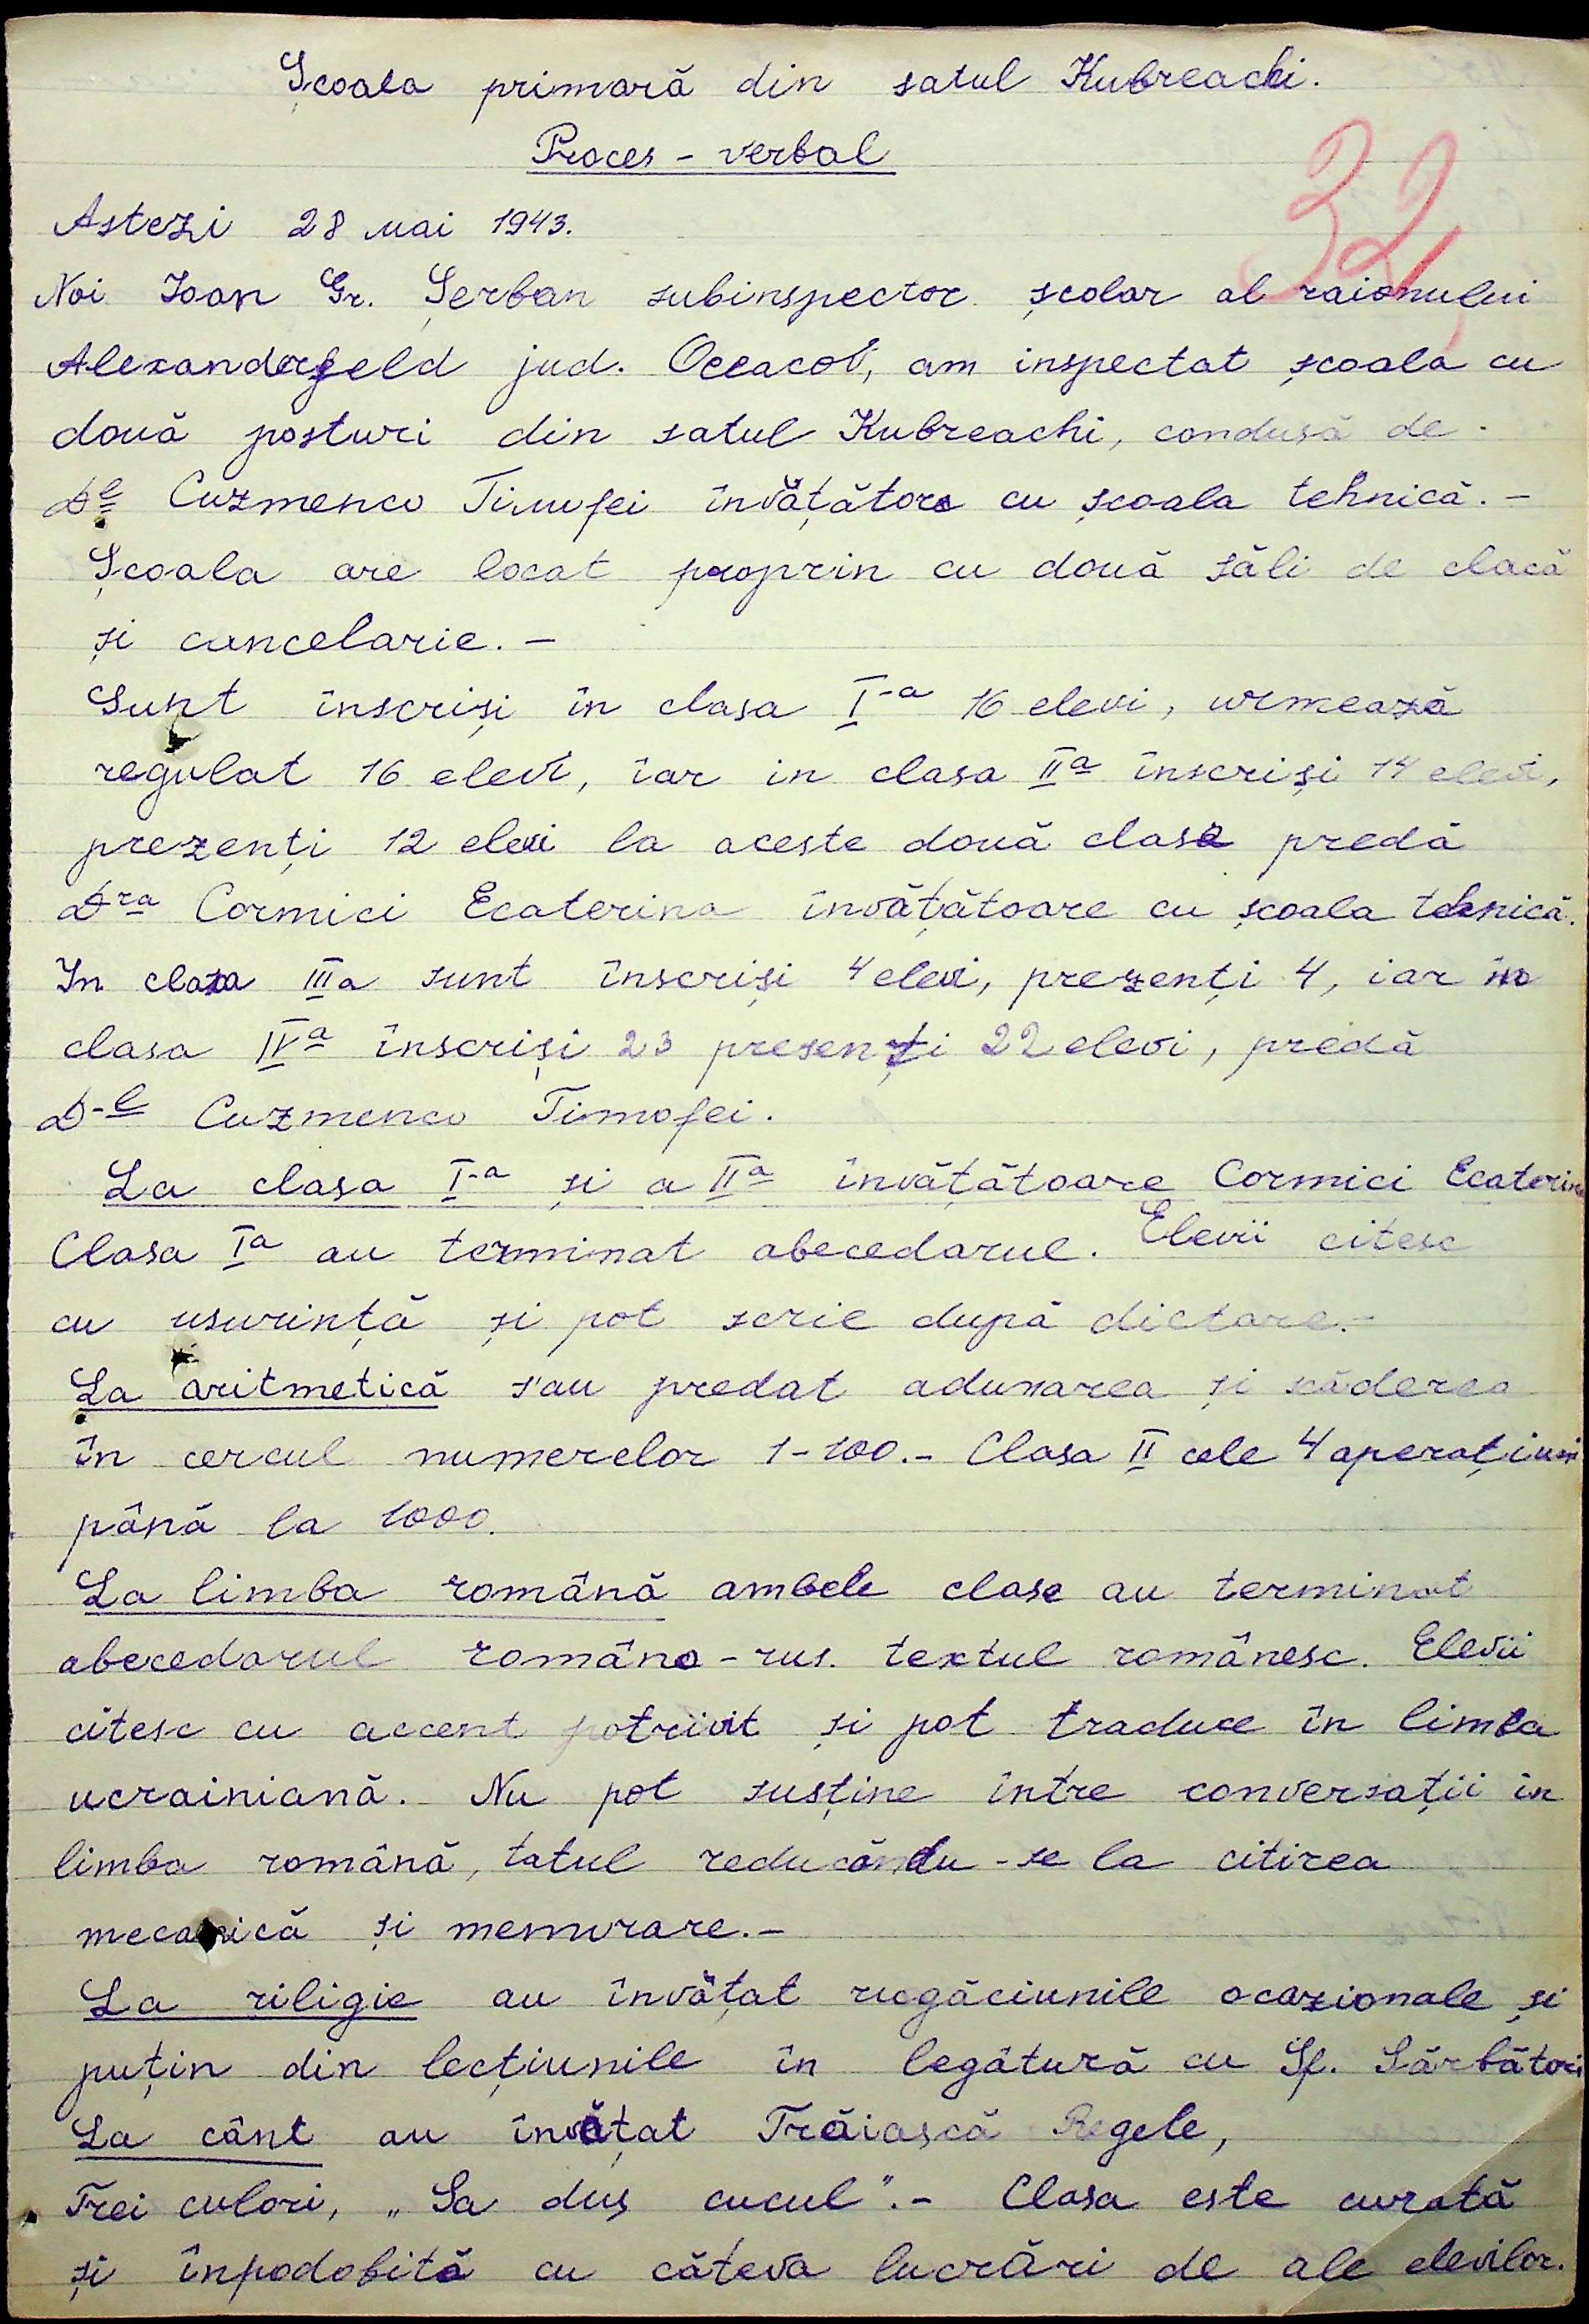 Școala primară din satul Kubreachi.
Proces - verbal
32
Astezi 28 mai 1943.
Noi Ioan Gr. Șerban subinspector școlar al raionului
Alexanderfeld jud. Oceacov, am inspectat școala cu
două posturi din satul Kubreachi, condusă de
D-l Cuzmenco Timofei învățător cu școala tehnică. -
Școala are locat proprin cu două săli de clacă
și cancelarie. -
Sunt înscriși în clasa I-a 16 elevi, urmează
regulat 16 elevi, iar in clasa IIa înscriși 14 elevi,
prezenți 12 elevi la aceste două clase predă
Dra Cormici Ecaterina învățătoare cu școala tehnică.
In clasa IIIa sunt înscriși 4 elevi, prezenți 4, iar în
clasa IVa înscriși 23 presenți 22 elevi, predă
D-l Cuzmenco Timofei.
La clasa I-a și a IIa învățătoare Cormici Ecaterina
Clasa Ia au terminat abecedarul. Elevii citesc
cu usurință și pot scrie după dictare. -
La aritmetică s'au predat adunarea și scăderea
în cercul numerelor 1-100. - Clasa II cele 4 aperațiuni
până la 1000.
La limba română ambele clase au terminat
abecedarul româno - rus. textul românesc. Elevii
citesc cu accent potriivit și pot traduce în limba
ucrainiană. Nu pot susține între conversații in
limba română, totul reducându-se la citirea
mecanică și memorare. -
La riligie au învățat rugăciunile ocazionale și
puțin din lecțiunile în legătură cu Sf. Sărbători
La cânt au învățat Trăiască Regele,
Trei culori, „Sa dus cucul". - Clasa este curată
și înpodobită cu căteva lucrări de ale elevilor.